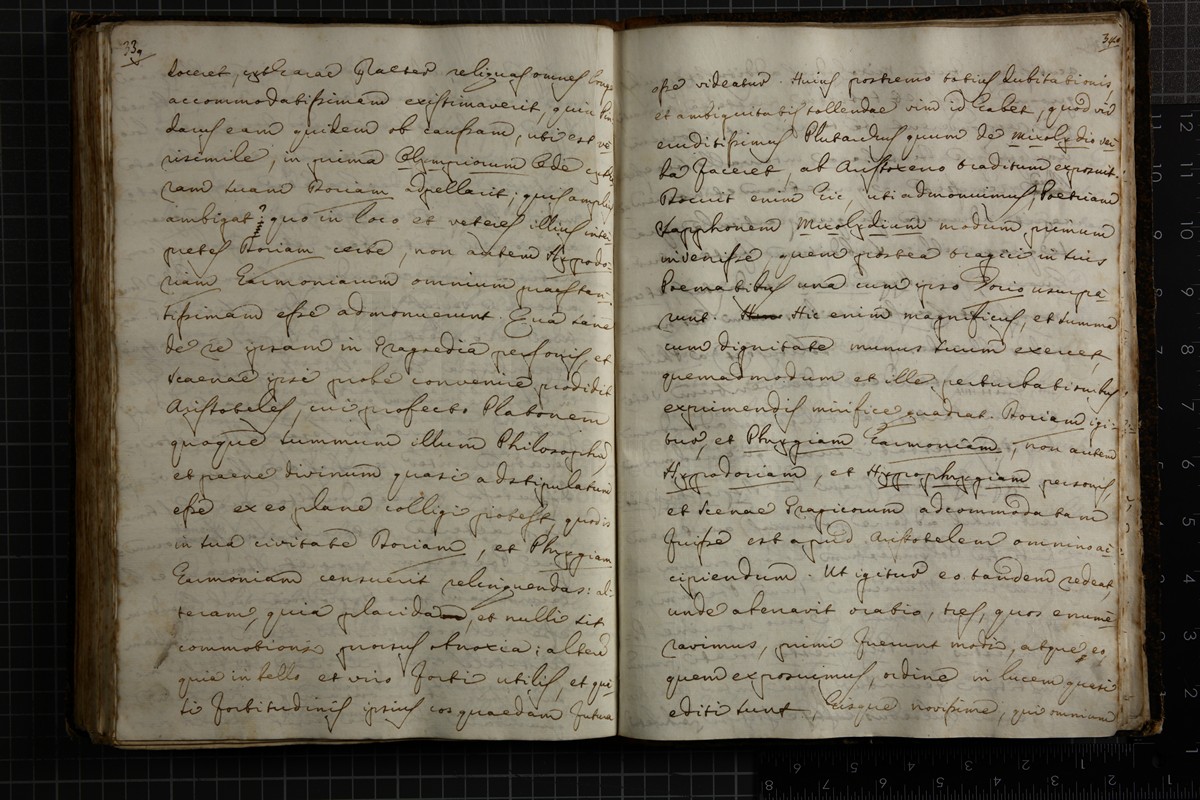 339
doceret, citharae praeter reliquas omnes long
accommodatissimam existimaverit, quin Pin
darus eam quidem ob caussam, uti est ve
risimile, in prima Olympiorum Ode cytha
ram suam Doriam adpellarit; quis amplius
ambigat? quo in loco et veteres illius inter
pretes Doriam certe, non autem Hypodo-
riam harmoniarum omnium praestan-
tissimam esse admonuerunt. Qua sane
de re ipsam in Tragaedia personis, et
scaenae ipsi probe convenire prodidit
Aristoteles, cui profecto Platonem
quoque summum illum Philosophum,
et paene divinum quasi adstipulatum
esse ex eo plane colligi potest, quod is
in sua civitate Doriam, et Phrygiam
harmoniam censuerit relinquendas: al-
teram, quia placida, et nulli sit
commotioni prorsus obnoxia; alteram
quia in bello et viro forti utilis, et qua-
si fortitudinis ipsius cos quaedam futura
340
esse videatur. Huius postremo totius dubitationis,
et ambiguitatis tollendae vim id habet, quod vir
eruditissimus Plutarchus quum de Mixolydio ver-
ba faceret, ab Aristoxeno traditum exposuit.
Docuit enim hic, uti admonuimus, Poetriam
Sapphonem Mixolydium modum primum
invenisse quem postea tragici in suis
Poematibus una cum ipso Dorio usurpa
runt. Hic enim magnificus, et summa
cum dignitate munus suum exercet,
quemadmodum et ille perturbationibus
exprimendis mirifice quadrat. Doriam igi-
tur, et Phrygiam harmoniam, non autem
Hypodoriam, et Hypophrygiam personis,
et scenae Tragicorum adcommodatam
fuisse est apud Aristotelem omnino ac-
cipiendum. Ut igitur eo tandem redeat,
unde aberravit oratio, tres, quos enume
ravimus, primi fuerunt modi, atque eo
quem exposuimus, ordine in lucem quasi
editi sunt, hisque novissime, qui omnium